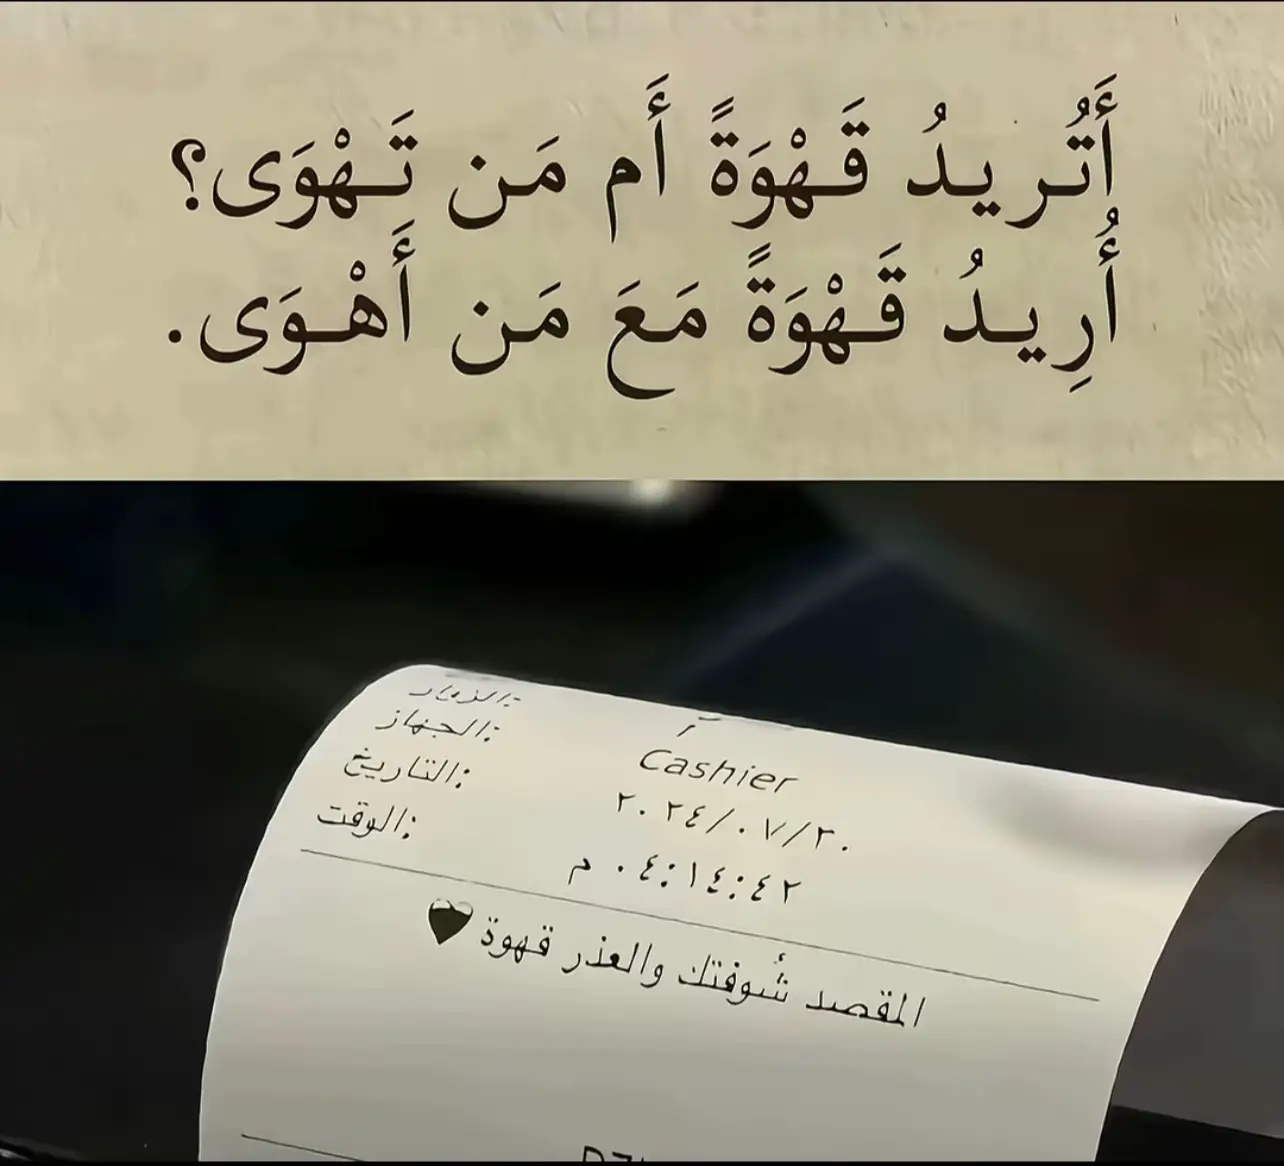 أَتُريدُ قَهْوَةً أَم مَن تَهْوَى؟
أُرِيدُ قَهْوَةً مَعَ مَن أَهْوَى.
الجهاز: Cashier
التاريخ: ٢٠٢٤/٠٧/٢٠
الوقت: ٠٤:١٤:٤٢ م
المقصد شُوفتك والعذر قهوة ♥